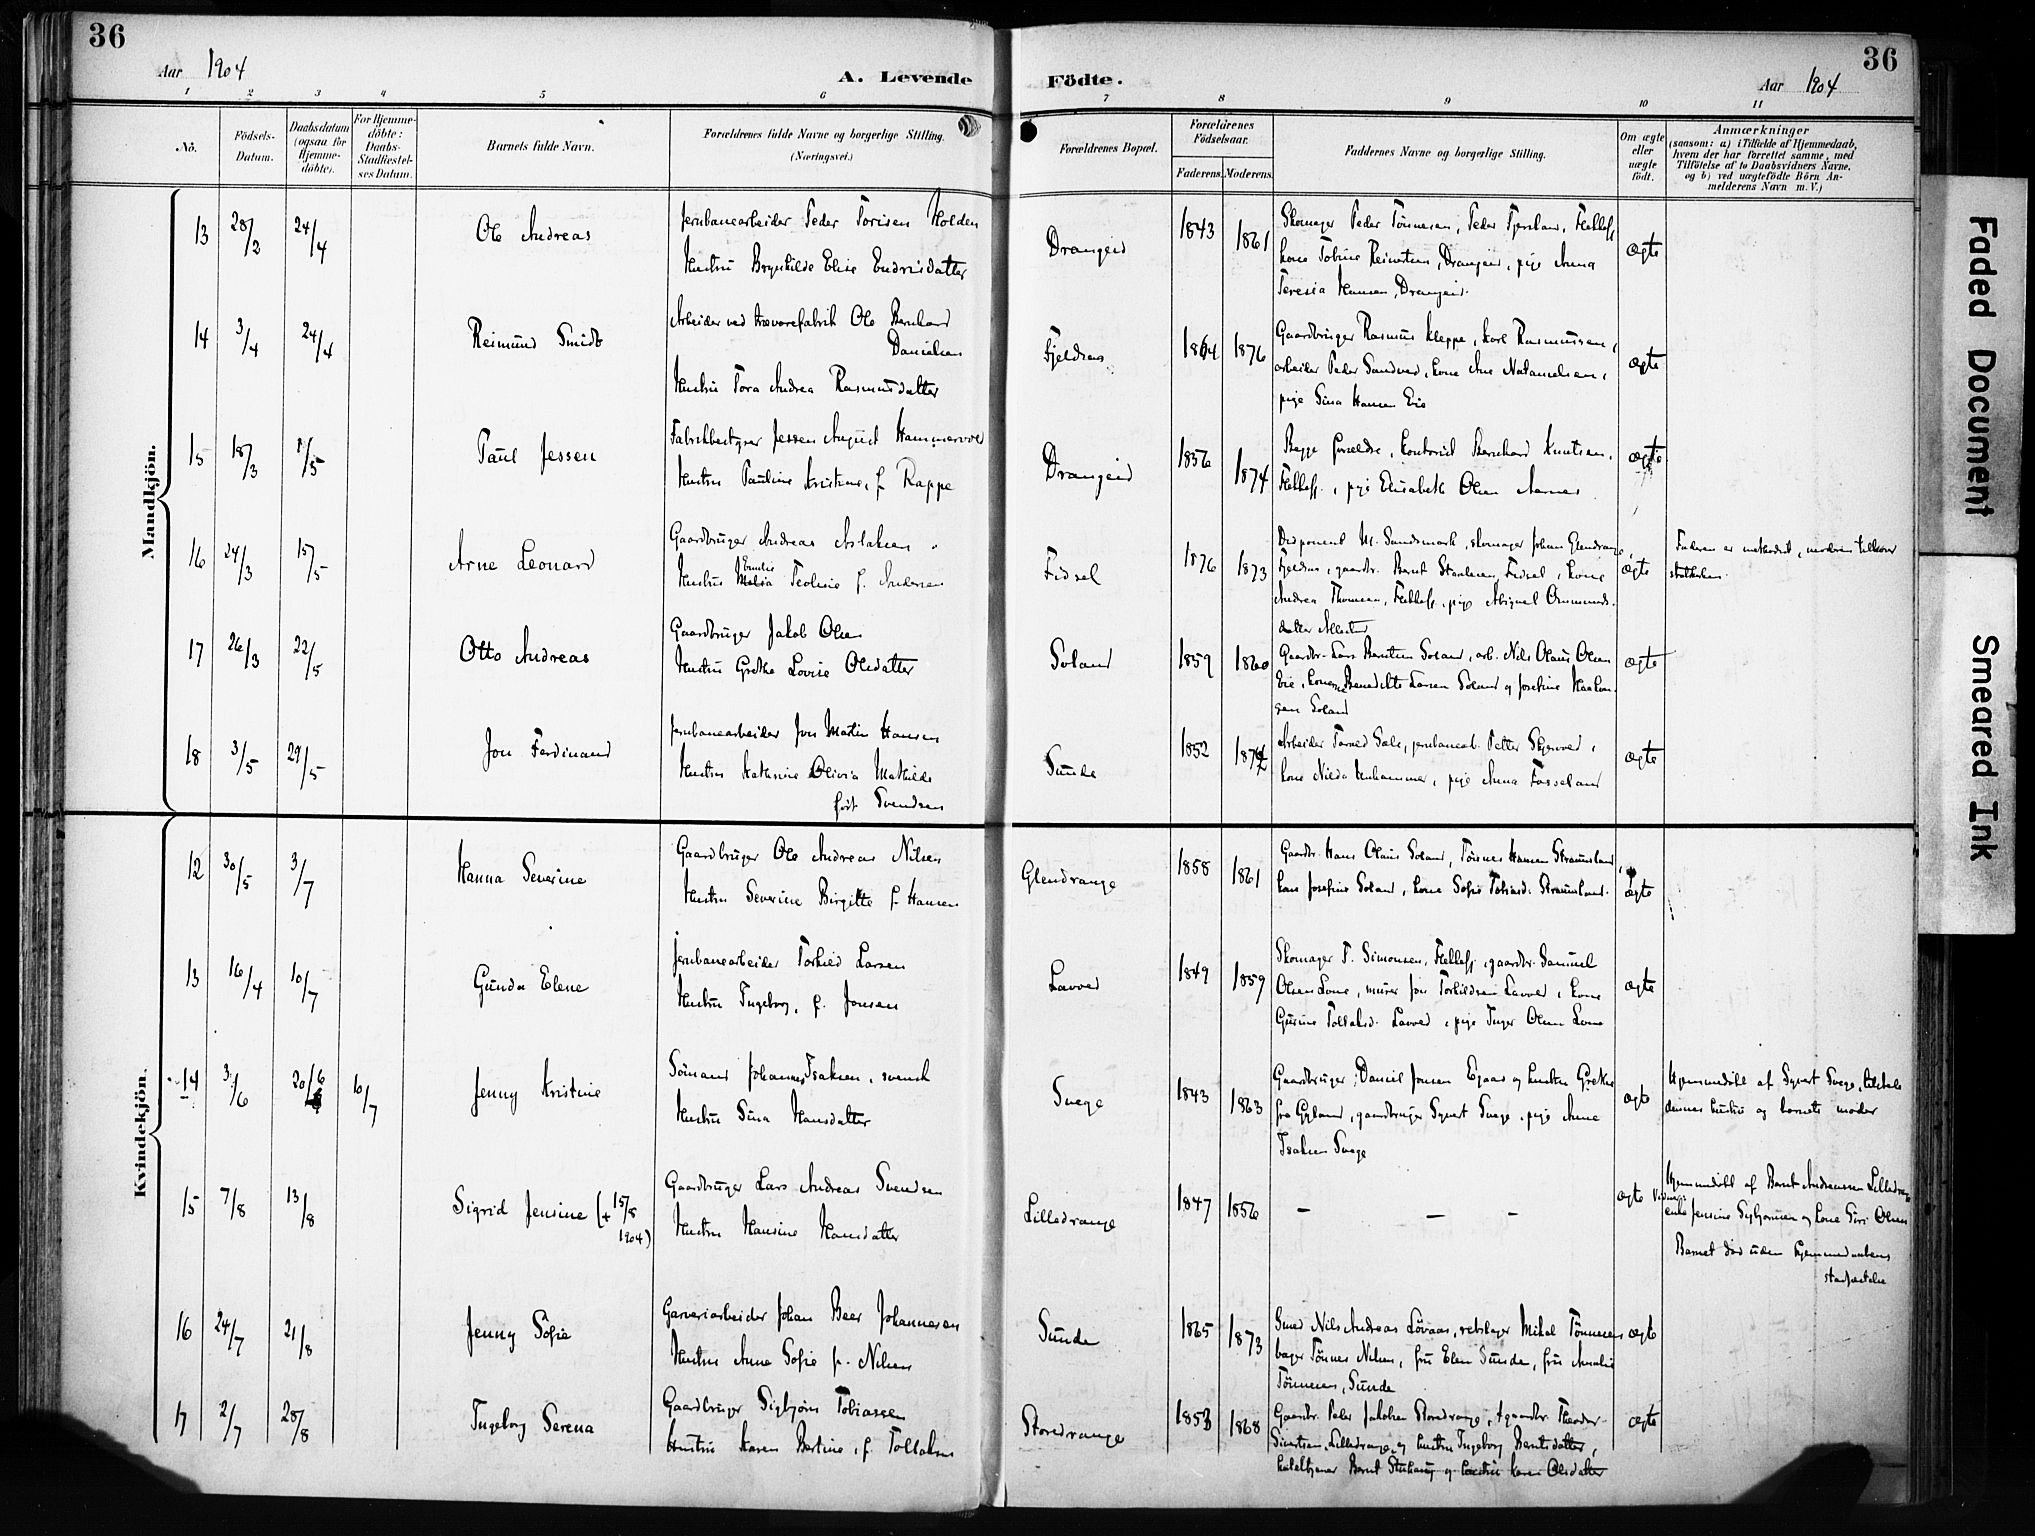 36
Aar 1904
A. Levende
Födte.
Aar 1904
36
1 2 3 4 5 6 7 8 9 10 11
No.
Födsels-
Datum.
Daabsdatum
(ogsaa for
Hjemme-
döbte).
For Hjemme-
döbte:
Daabs-
Stadfæstel-
ses Datum.
Barnets fulde Navn.
Forældrenes fulde Navne og borgerlige Stilling.
(Næringsvei.)
Forældrenes Bopæl.
Forældrenes
Födselsaar.
Faderens. Moderens.
Faddernes Navne og borgerlige Stilling.
Om ægte
eller
uægte
födt.
Anmærkninger
(saasom: a) i Tilfælde af Hjemmedaab,
hvem der har forrettet samme, med
Tilföielse af to Daabsvidners Navne.
og b) ved uægtefödte Börn An-
melderens Navn m. V.)
Mandkjön.
13 28/2 24/4 Ole Andreas
Jernbanearbeider Peder Torisen Holden
Hustru Brynhilde Elise Endresdatter
Drangeid 1843 1861
Skomager Peder Tönnesen, Peder Tjersland, Flekkefj
kone Tobine Reinertsen, Drangeid, pige Anna
Teresia Hansen, Drangeid.
ægte
14 3/4 24/4 Reimund Smidt
Arbeider ved trævarefabrik Ole Bernhard
Danielsen
Hustru Tora Andrea Rasmusdatter
Fjeldsaa 1864 1876
Gaardbruger Rasmus Kleppe, Karl Rasmussen,
arbeider Peder Sandved, kone Ane Natanielsen,
pige Sina Hansen Eie
ægte
15 18/3 1/5 Paul Jessen
Fabrikbestyrer Jessen August Hammervold
Hustru Pauline Kristine, f. Rappe
Drangeid 1856 1874
Begge forældre, kontorist Bernhard Knutsen,
Flekkefj., pige Elisabeth Olsen Aames
ægte
16 24/3 15/5 Arne Leonard
Gaardbruger Andreas Aslaksen
Hustru Emilie Teoline f. Andersen
Fidsel 1876 1873
Disponent M. Sundsmark, skomager Johan Glendrange,
Fjeldsaa, gaardbr. Bernt Stenersen Fidsel, kone
Andrea Thomsen, Flekkefj., pige Abigael Ommunds-
datter
ægte
Faderen er methodist, moderen tilhører
statskirken
17 26/3 22/5 Otto Andreas
Gaardbruger Jakob Olsen
Hustru Grethe Lovise Olsdatter
Soland 1859 1860
Gaardbr. Lars Berntsen Soland, arb. Nils Olaus Olsen
Eie, konerne Benedikte Larsen Soland og Josefine Haakon-
sen Soland
ægte
18 3/5 29/5 Jon Ferdinand
Jernbanearbeider Jon Martin Hansen
Hustru Kathrine Olivia Mathilde
født Svendsen
Sunde 1852
Arbeider Tarald Sæle, jernbanearb. Petter
kone pige Anna
ægte
Kvindekjön.
12 30/5 3/7 Hanna Severine
Gaardbruger Ole Andreas Nilsen
Hustru Severine Birgitte f. Hansen
Glendrange 1858 1861
Gaardbr. Hans Olaus Soland, Tönnes Hansen Straumland,
kone Josefine Soland, kone Sofie Tobiasd. Straumland.
ægte
13 16/4 10/7 Gunda Elene
Jernbanearbeider Torkild Larsen
Hustru Ingeborg, f. Jonsen
Lavold 1849 1859
Skomager T. Simonsen, Flekkefj, gaardbr. Samuel
Olsen Lone, murer Jon Torkildsen Lavold, kone
Gurine Tollaksd. Lavold, pige Inger Olsen Lone
ægte
14 3/6 20/6 10/7 Jenny Kristine
Sömand Johannes Isaksen, svensk
Hustru Sina Hansdatter
Svege 1843 1863
Gaardbruger Daniel Jonsen Egaas og hustru Grethe
fra Gyland, gaardbruger Syvert Svege, pige Anne
Isaksen Svege
ægte
Hjemmedøbt af Syvert Svege, tilstede
dennes hustru og barnets moder
15 7/8 13/8 Sigrid Jensine (+ 15/8
1904)
Gaardbruger Lars Andreas Svendsen
Hustru Hansine Hansdatter
Lilledrange 1847 1856
— — —
ægte
Hjemmedøbt af Bernt Andreassen Lilledrange
Vidner: enke Jensine Sigbjørnsen og kone Siri Olsen
Barnet død uden hjemmedaabens
stadfæstelse
16 24/7 21/8 Jenny Sofie
Garveriarbeider Johan Beer Johannesen
Hustru Anne Sofie f. Nilsen
Sunde 1865 1873
Smed Nils Andreas Lövaas, rebslager Mikal Tönnesen
bager Tönnes Nilsen, fru Elen Sunde, fru Amalie
Tönnesen, Sunde
ægte
17 2/7 28/8 Ingeborg Serena
Gaardbruger Sigbjörn Tobiassen
Hustru Karen Bertine, f. Tollaksen
Storedrange 1853 1868
Gaardbr. Peder Jakobsen Storedrange, gaardbr. Theodor
Sivertsen, Lilledrange, og hustru Ingeborg Berntsdatter,
Bernt og hustru Karen Olsdatter
ægte
Faded Document
Smeared Ink